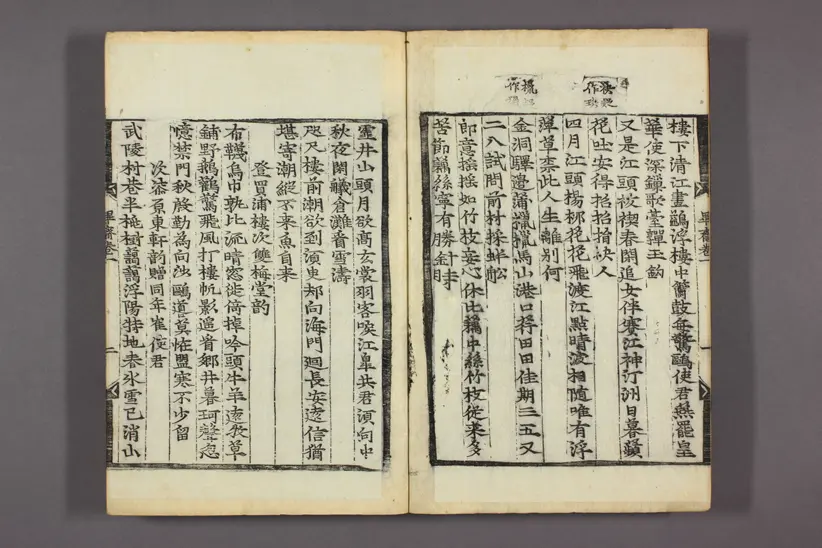 樓下清江畫鷁浮樓中簫鼓每驚鷗使君無罷皇
華使深鏁歌臺嚲玉鉤
又是江頭祓禊春閑追女伴賽江神汀洲日暮蘋
花吐安得招招捨袂人
四月江頭楊柳花花飛渡江點晴波相隨唯有浮
萍草柰此人生離別何
金洞驛邊蒲獵獵馬山港口荇田田佳期三五又
二八試問前村採蚌船
郎意搖搖如竹枝妾心休比藕中絲竹枝從來多
苦節藕絲寧有勝針時
靈井山頭月欲高玄裳羽客唳江皐共君須向中
秋夜閑艤倉灘看雪濤
咫尺樓前潮欲到須臾却向海門廻長安遠信猶
堪寄潮縱不來魚自来
登買浦樓次雙梅堂韵
布韈烏巾孰比流晴窓徙倚掉吟頭牛羊遠散草
鋪野鸛鶴驚飛風打樓帆影遙看鄉井暮珂聲忽
憶禁門秋慇勤爲向沙鷗道莫恠盟寒不少留
次蓉原東軒韵贈同年崔使君
武陵村巷半桃樹藹藹浮陽特地春氷雪已消山
卑齋卷一
卑齋卷一
二